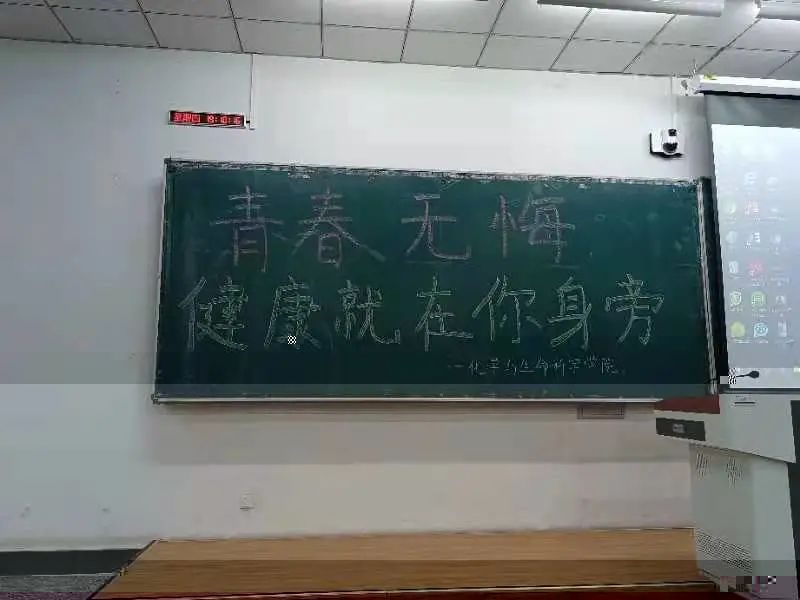 星期四 19:10:16
青春无悔
健康就在你身旁
--化学与生命科学学院